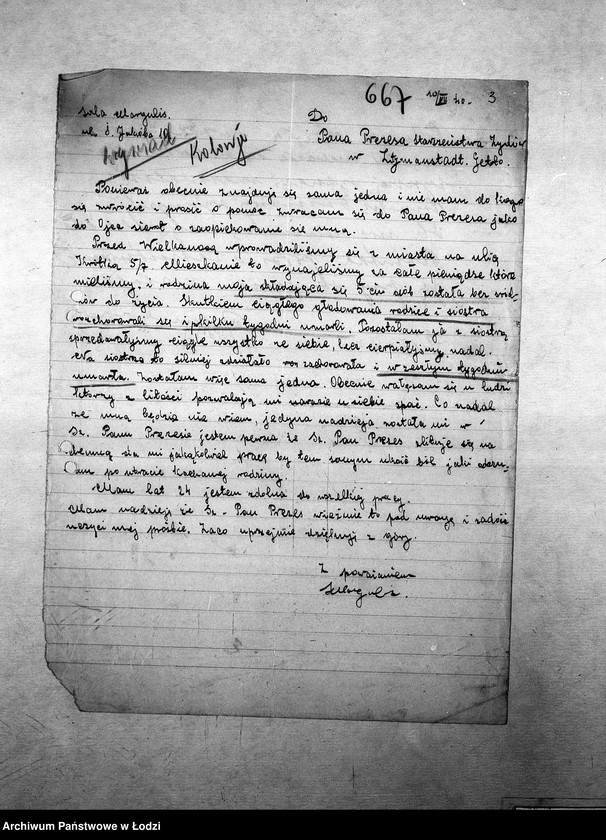 667 10/XII 40. 3
Margulis.
ul. Jakóba 10
Do
Pana Prezesa Starszeństwa Żydów
w Litzmanstadt. Getto.
wywiad Kolonja
Ponieważ obecnie znajduję się sama jedna i nie mam do kogo
się zwrócić i prosić o pomoc zwracam się do Pana Prezesa jako
do Ojca sierot o zaopiekowanie się mną.
Przed Wielkanocą wprowadziliśmy się z miasta na ulicę
5/7. Mieszkanie to wynajęliśmy za całe pieniądze które
mieliśmy, i rodzina moja składająca się z 5-ciu osób została bez środ-
ków do życia. Skutkiem ciągłego głodowania rodzice i siostra
rozchorowali się i po kilku tygodni umarli. Pozostałam ja z siostrą
sprzedawałyśmy ciągle wszystko ze siebie, lecz cierpiałyśmy nadal.
Na siostrę to silniej działało rozchorowała i w zeszłym tygodniu
umarła. Zostałam więc sama jedna. Obecnie wałęsam się u ludzi
którzy z litości pozwalają mi narazie u siebie spać. Co nadal
ze mną będzie nie wiem, jedyna nadzieja została mi w
Sz. Panu Prezesie jestem pewna że Sz. Pan Prezes zlituje się na-
demną da mi jakąkolwiek pracę by tem samym ukoić ból jaki odczu-
łam po utracie kochanej rodziny.
Mam lat 24 jestem zdolna do wszelkiej pracy.
Mam nadzieję że Sz. Pan Prezes weźmie to pod uwagę i zadość
uczyni mej prośbie. Zaco uprzejmie dziękuję z góry.
Z poważaniem
Archiwum Państwowe w Łodzi